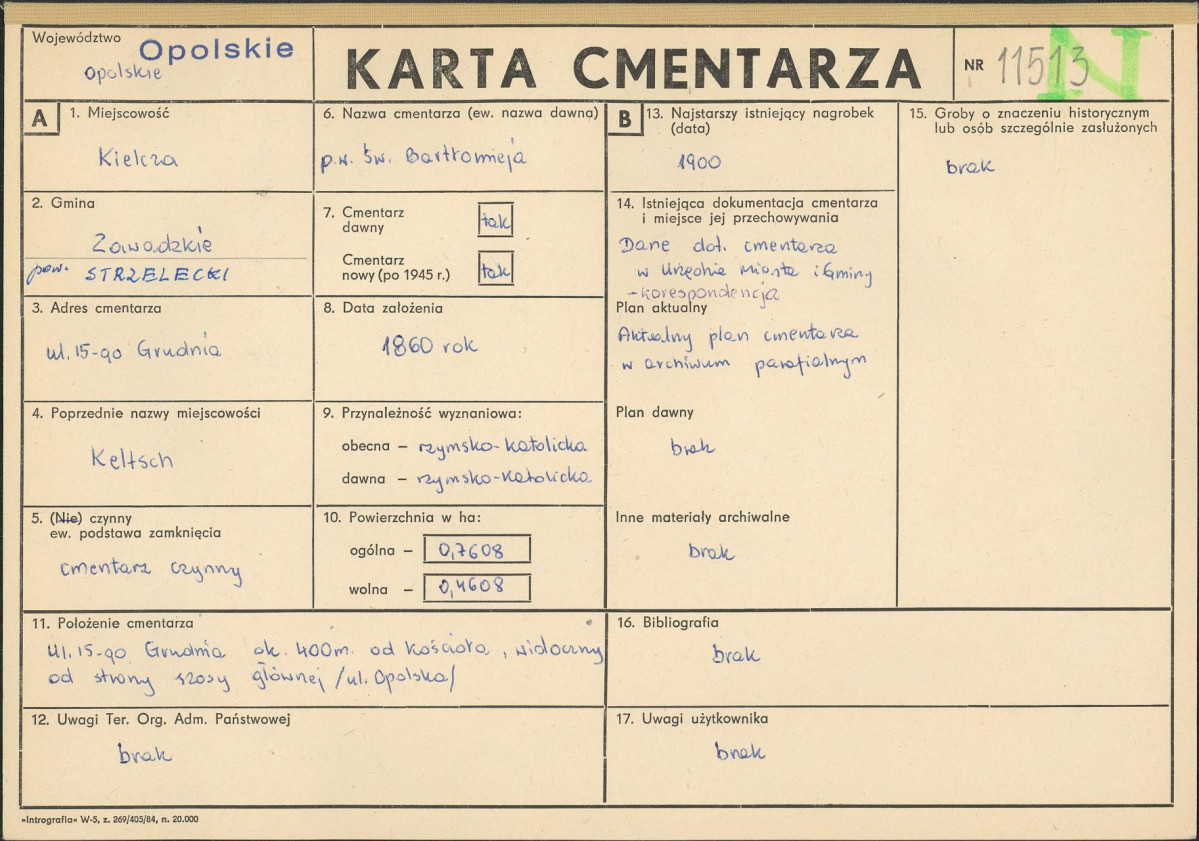 Województwo
Opolskie
Opolskie
KARTA CMENTARZA
NR 11513
N
A
1. Miejscowość
Kielcza
2. Gmina
Zawadzkie
pow. STRZELECKI
3. Adres cmentarza
ul. 15-go Grudnia
4. Poprzednie nazwy miejscowości
Keltsch
5. (Nie) czynny
ew. podstawa zamknięcia
cmentarz czynny
6. Nazwa cmentarza (ew. nazwa dawna)
p.w. Św. Bartłomieja
7. Cmentarz
dawny
tak
Cmentarz
nowy (po 1945 r.)
tak
8. Data założenia
1860 rok
9. Przynależność wyznaniowa:
obecna – rzymsko-katolicka
dawna – rzymsko-katolicka
10. Powierzchnia w ha:
ogólna – 0,7608
wolna – 0,4608
11. Położenie cmentarza
Ul. 15-go Grudnia ok. 400m. od kościoła, widoczny
od strony szosy głównej /ul. Opolska/
12. Uwagi Ter. Org. Adm. Państwowej
brak
B
13. Najstarszy istniejący nagrobek
(data)
1900
14. Istniejąca dokumentacja cmentarza
i miejsce jej przechowywania
Dane dot. cmentarza
w Urzędzie Miasta i Gminy
-korespondencja
Plan aktualny
Aktualny plan cmentarza
w archiwum parafialnym
Plan dawny
brak
Inne materiały archiwalne
brak
15. Groby o znaczeniu historycznym
lub osób szczególnie zasłużonych
brak
16. Bibliografia
brak
17. Uwagi użytkownika
brak
»Intrografia« W-5, z. 269/405/84, n. 20.000